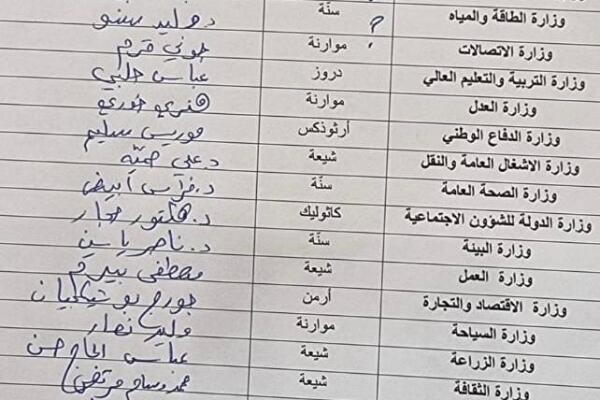 وزارة الطاقة والمياه سنّة ? د. وليد سنو
وزارة الاتصالات موارنة جوني قرم
وزارة التربية والتعليم العالي دروز عباس حلبي
وزارة العدل موارنة هنري خوري
وزارة الدفاع الوطني أرثوذكس موريس سليم
وزارة الاشغال العامة والنقل شيعة د. علي حميّه
وزارة الصحة العامة سنّة د. فراس أبيض
وزارة الدولة للشؤون الاجتماعية كاثوليك د. هكتور حجار
وزارة البيئة سنّة د. ناصر ياسين
وزارة العمل شيعة مصطفى بيرم
وزارة الاقتصاد والتجارة أرمن جورج بوشيكيان
وزارة السياحة موارنة وليد نصار
وزارة الزراعة شيعة عباس الحاج حسن
وزارة الثقافة شيعة محمد وسام مرتضى